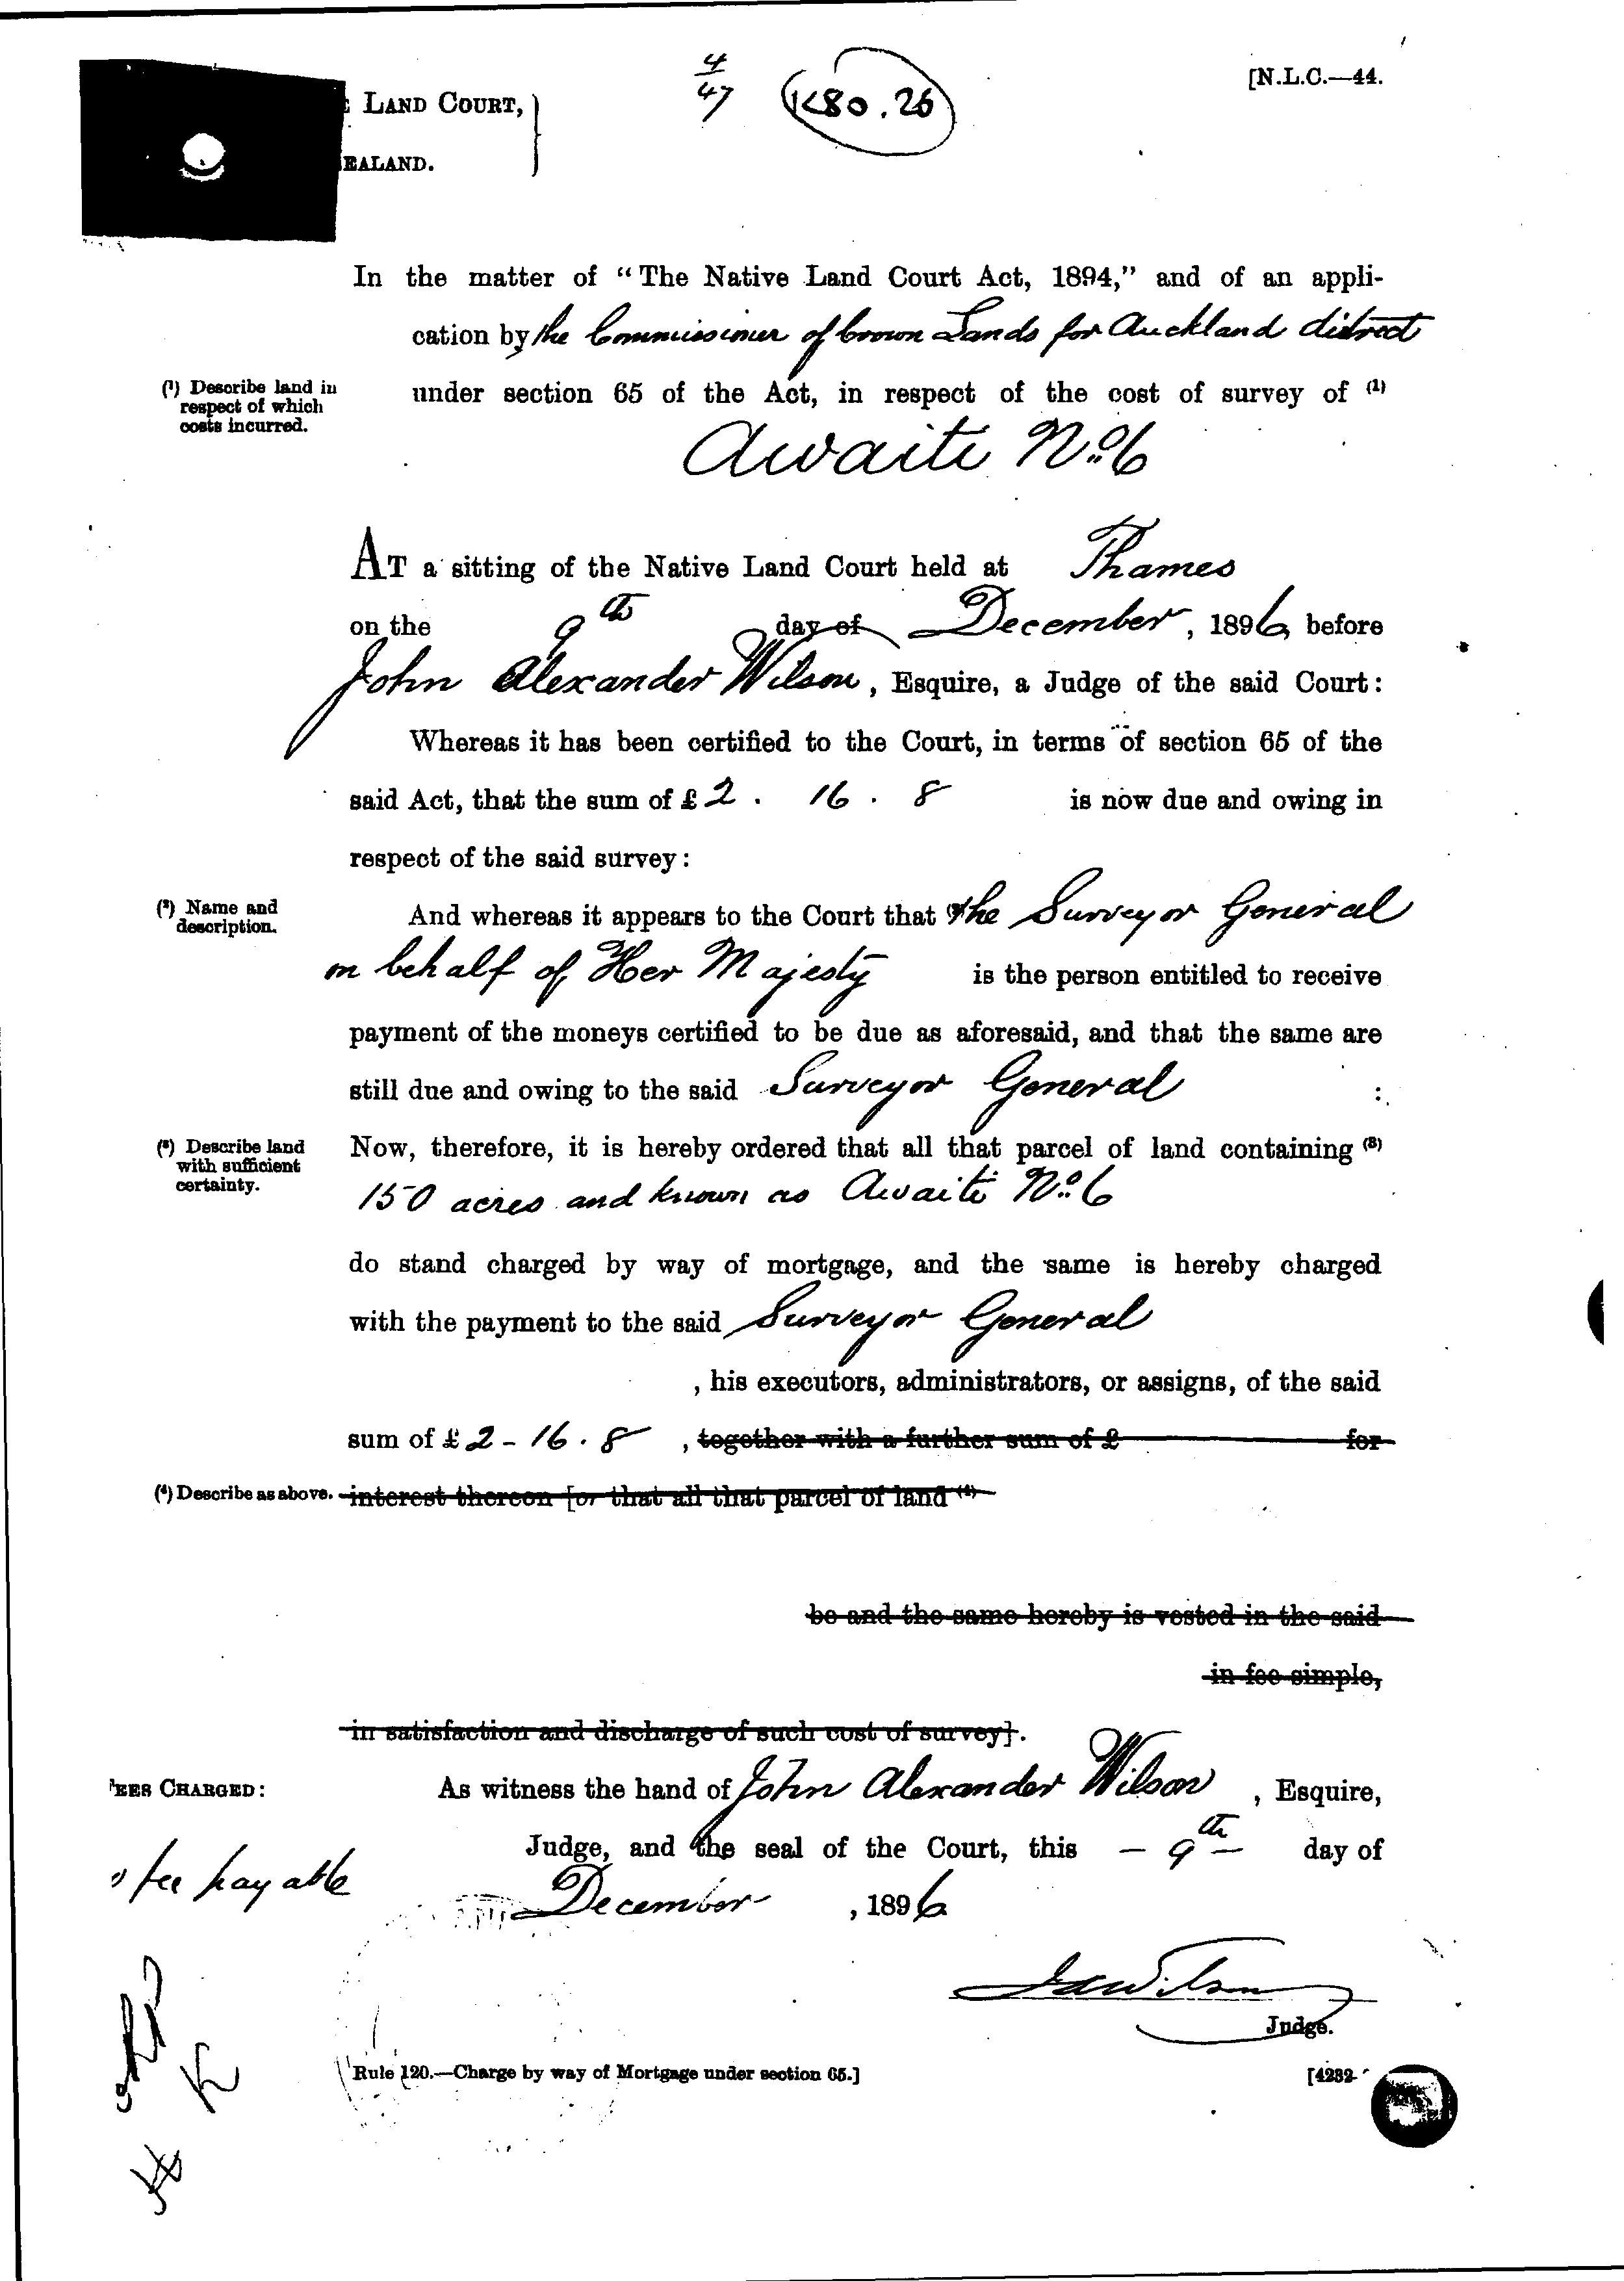 4
47
K80.26
[N.L.C.—44.
LAND COURT,
EALAND.
In the matter of “The Native Land Court Act, 1894,” and of an appli-
cation by the Commissioner of Crown Lands for Auckland district
(1) Describe land in
respect of which
costs incurred.
under section 65 of the Act, in respect of the cost of survey of (1)
Awaiti No. 6
AT a sitting of the Native Land Court held at Thames
on the 9th day of December, 1896, before
John Alexander Wilson, Esquire, a Judge of the said Court:
Whereas it has been certified to the Court, in terms of section 65 of the
said Act, that the sum of £2 . 16 . 8 is now due and owing in
respect of the said survey:
(2) Name and
description.
And whereas it appears to the Court that the Surveyor General
on behalf of Her Majesty is the person entitled to receive
payment of the moneys certified to be due as aforesaid, and that the same are
still due and owing to the said Surveyor General :
(3) Describe land
with sufficient
certainty.
Now, therefore, it is hereby ordered that all that parcel of land containing (3)
150 acres and known as Awaiti No. 6
do stand charged by way of mortgage, and the same is hereby charged
with the payment to the said Surveyor General
, his executors, administrators, or assigns, of the said
sum of £2 - 16 . 8 , together with a further sum of £ for
(4) Describe as above. interest thereon [or that all that parcel of land (4)
be and the same hereby is vested in the said
in fee simple,
in satisfaction and discharge of such cost of survey].
EES CHARGED:
As witness the hand of John Alexander Wilson, Esquire,
Judge, and the seal of the Court, this — 9th — day of
o fee payable
December , 1896
JAWilson
Judge.
Rule 120.—Charge by way of Mortgage under section 65.]
[4232